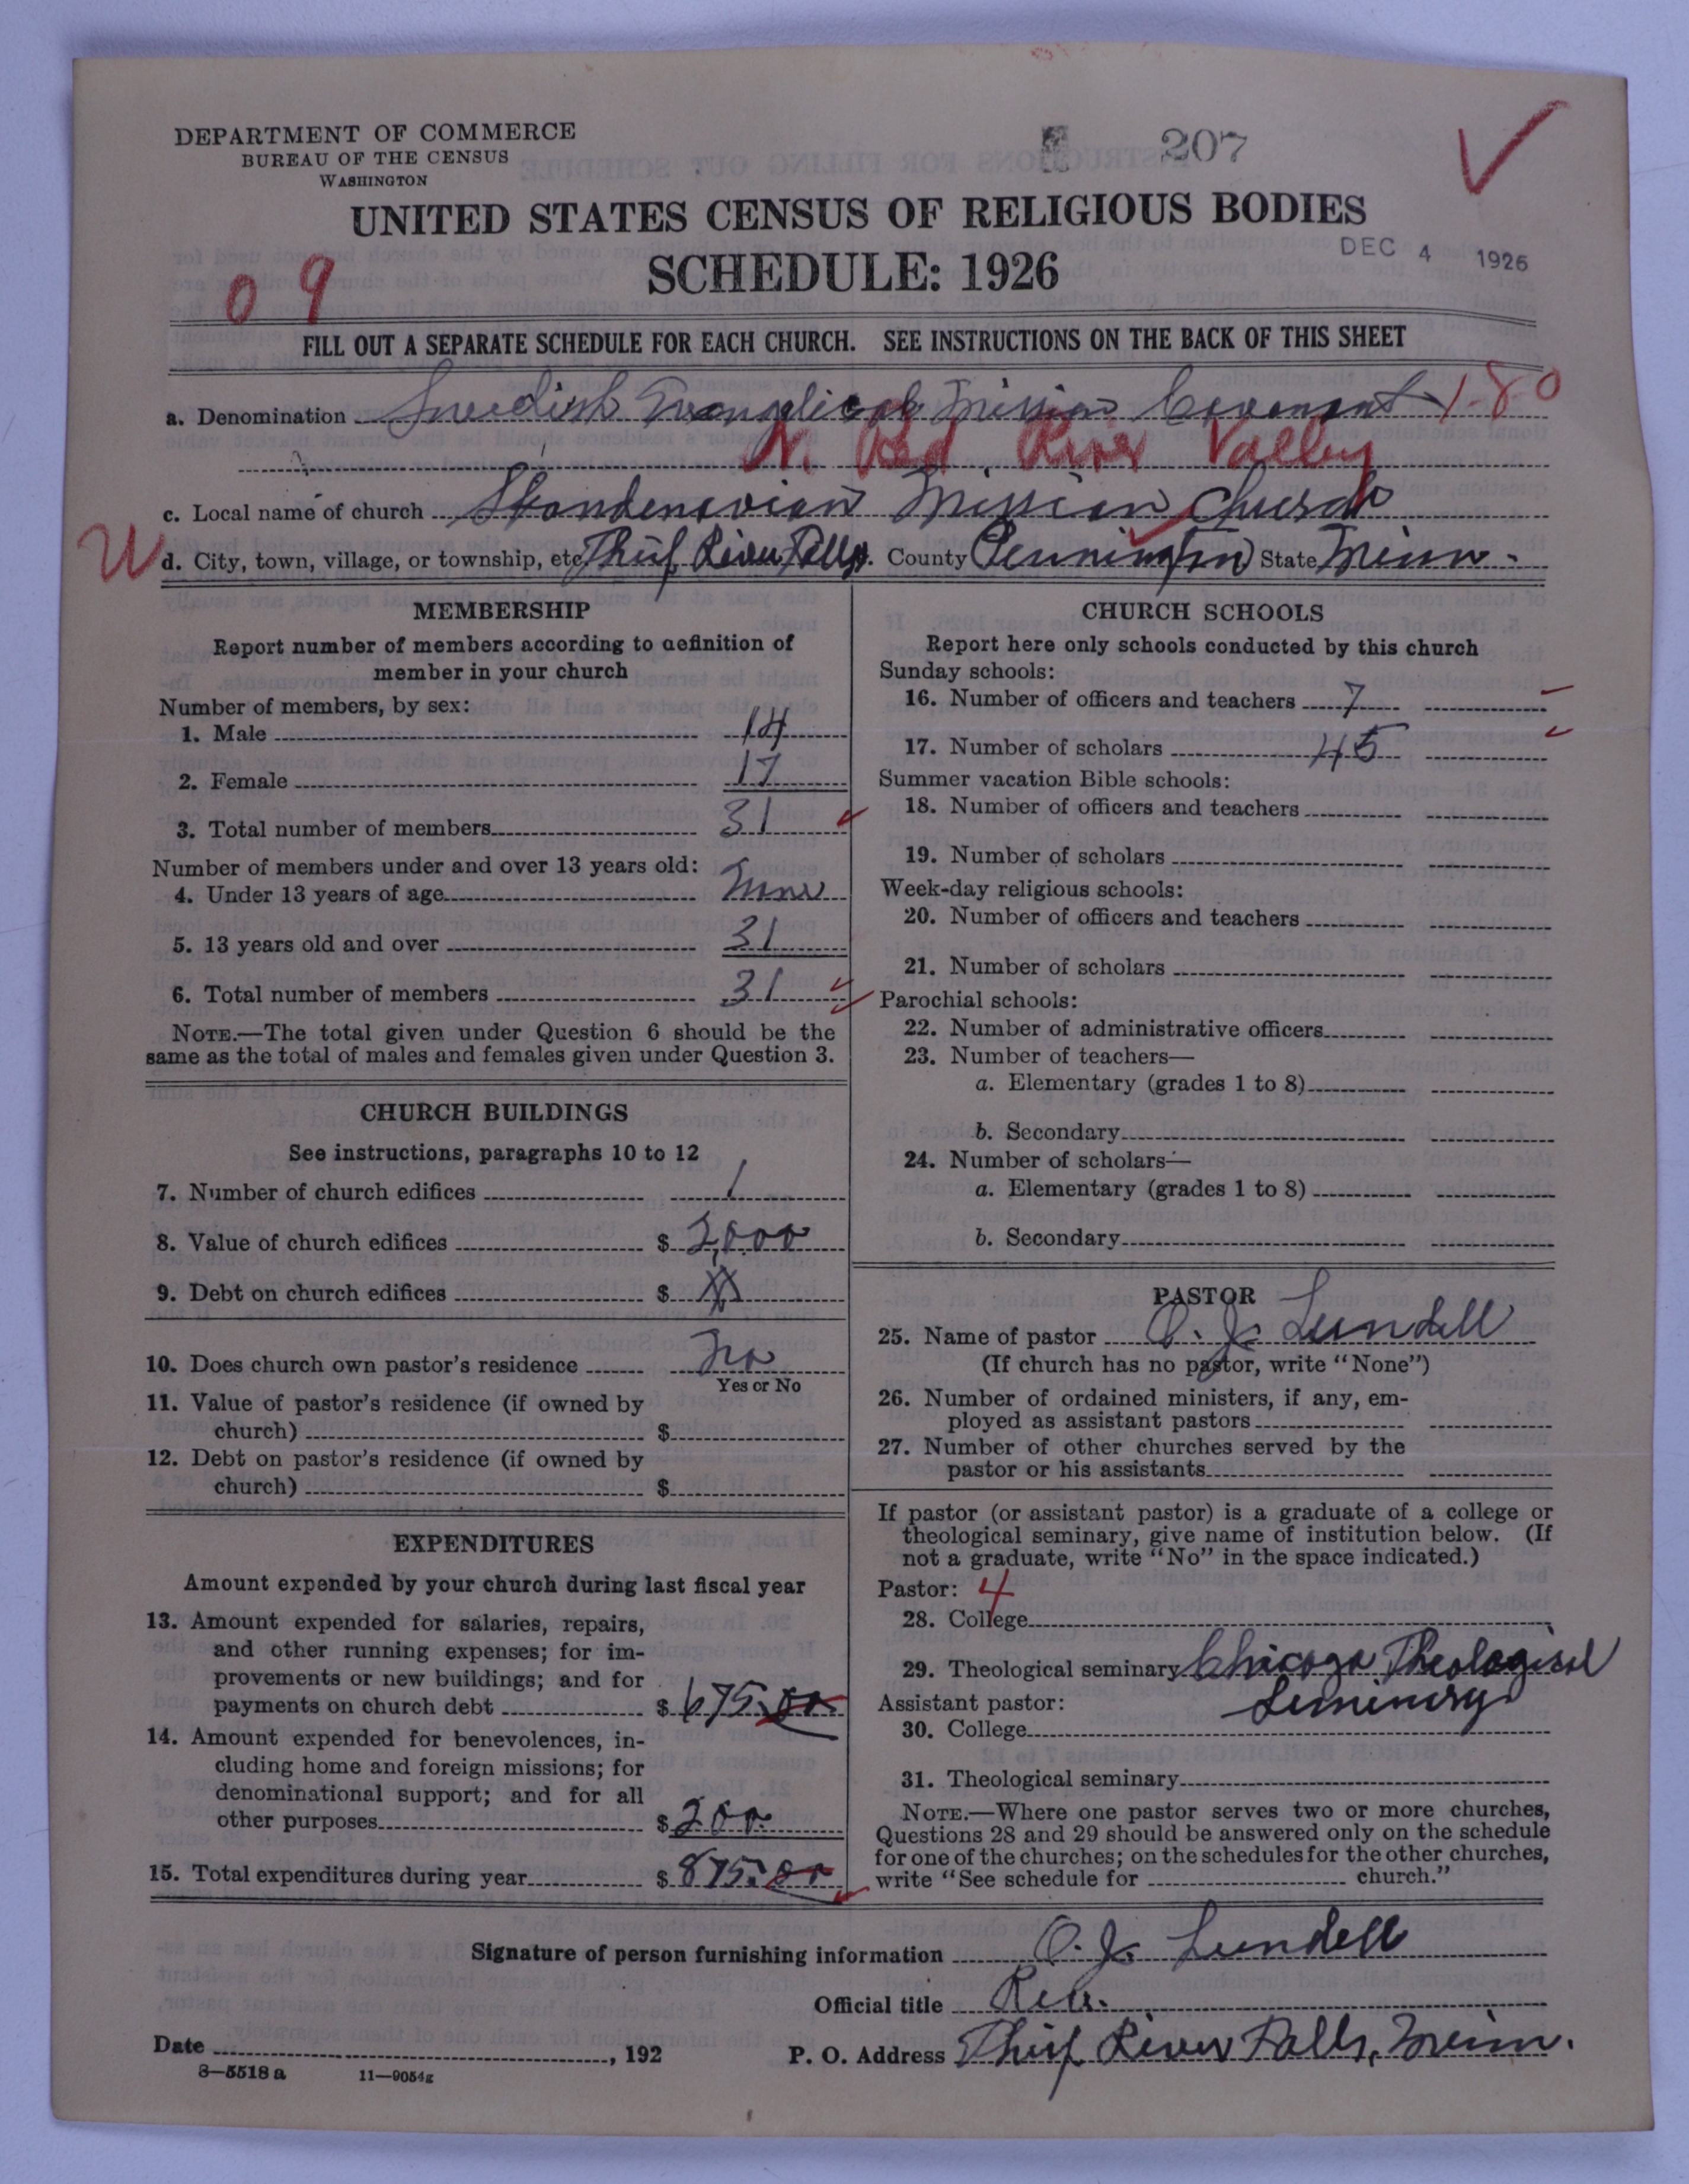 DEPARTMENT OF COMMERCE
BUREAU OF THE CENSUS
WASHINGTON
207
UNITED STATES CENSUS OF RELIGIOUS BODIES
SCHEDULE: 1926
DEC 4 1926
09
FILL OUT A SEPARATE SCHEDULE FOR EACH CHURCH. SEE INSTRUCTIONS ON THE BACK OF THIS SHEET
a. Denomination Swedish Evangelical Mission Covenant 1-80
N. Red River Valley
c. Local name of church Skandenavian Mission Church
d. City, town, village, or township, etc. Thief River Falls. County Pennington State Minn.
MEMBERSHIP
Report number of members according to definition of
member in your church
Number of members, by sex:
1. Male 14
2. Female 17
3. Total number of members 31
Number of members under and over 13 years old:
4. Under 13 years of age None
5. 13 years old and over 31
6. Total number of members 31
NOTE.—The total given under Question 6 should be the
same as the total of males and females given under Question 3.
CHURCH BUILDINGS
See instructions, paragraphs 10 to 12
7. Number of church edifices 1
8. Value of church edifices $ 2,000
9. Debt on church edifices $
10. Does church own pastor's residence No
Yes or No
11. Value of pastor's residence (if owned by
church) $
12. Debt on pastor's residence (if owned by
church) $
EXPENDITURES
Amount expended by your church during last fiscal year
13. Amount expended for salaries, repairs,
and other running expenses; for im-
provements or new buildings; and for
payments on church debt $ 675.00
14. Amount expended for benevolences, in-
cluding home and foreign missions; for
denominational support; and for all
other purposes $ 200.
15. Total expenditures during year $ 875.00
CHURCH SCHOOLS
Report here only schools conducted by this church
Sunday schools:
16. Number of officers and teachers 7
17. Number of scholars 45
Summer vacation Bible schools:
18. Number of officers and teachers
19. Number of scholars
Week-day religious schools:
20. Number of officers and teachers
21. Number of scholars
Parochial schools:
22. Number of administrative officers
23. Number of teachers—
a. Elementary (grades 1 to 8)
b. Secondary
24. Number of scholars—
a. Elementary (grades 1 to 8)
b. Secondary
PASTOR
25. Name of pastor O. J. Lundell
(If church has no pastor, write "None")
26. Number of ordained ministers, if any, em-
ployed as assistant pastors
27. Number of other churches served by the
pastor or his assistants
If pastor (or assistant pastor) is a graduate of a college or
theological seminary, give name of institution below. (If
not a graduate, write "No" in the space indicated.)
Pastor: 4
28. College
29. Theological seminary Chicago Theological
Seminary
Assistant pastor:
30. College
31. Theological seminary
NOTE.—Where one pastor serves two or more churches,
Questions 28 and 29 should be answered only on the schedule
for one of the churches; on the schedules for the other churches,
write "See schedule for church."
Signature of person furnishing information O. J. Lundell
Official title Rev.
Date , 192
P. O. Address Thief River Falls, Minn.
8—5518 a 11—9054g